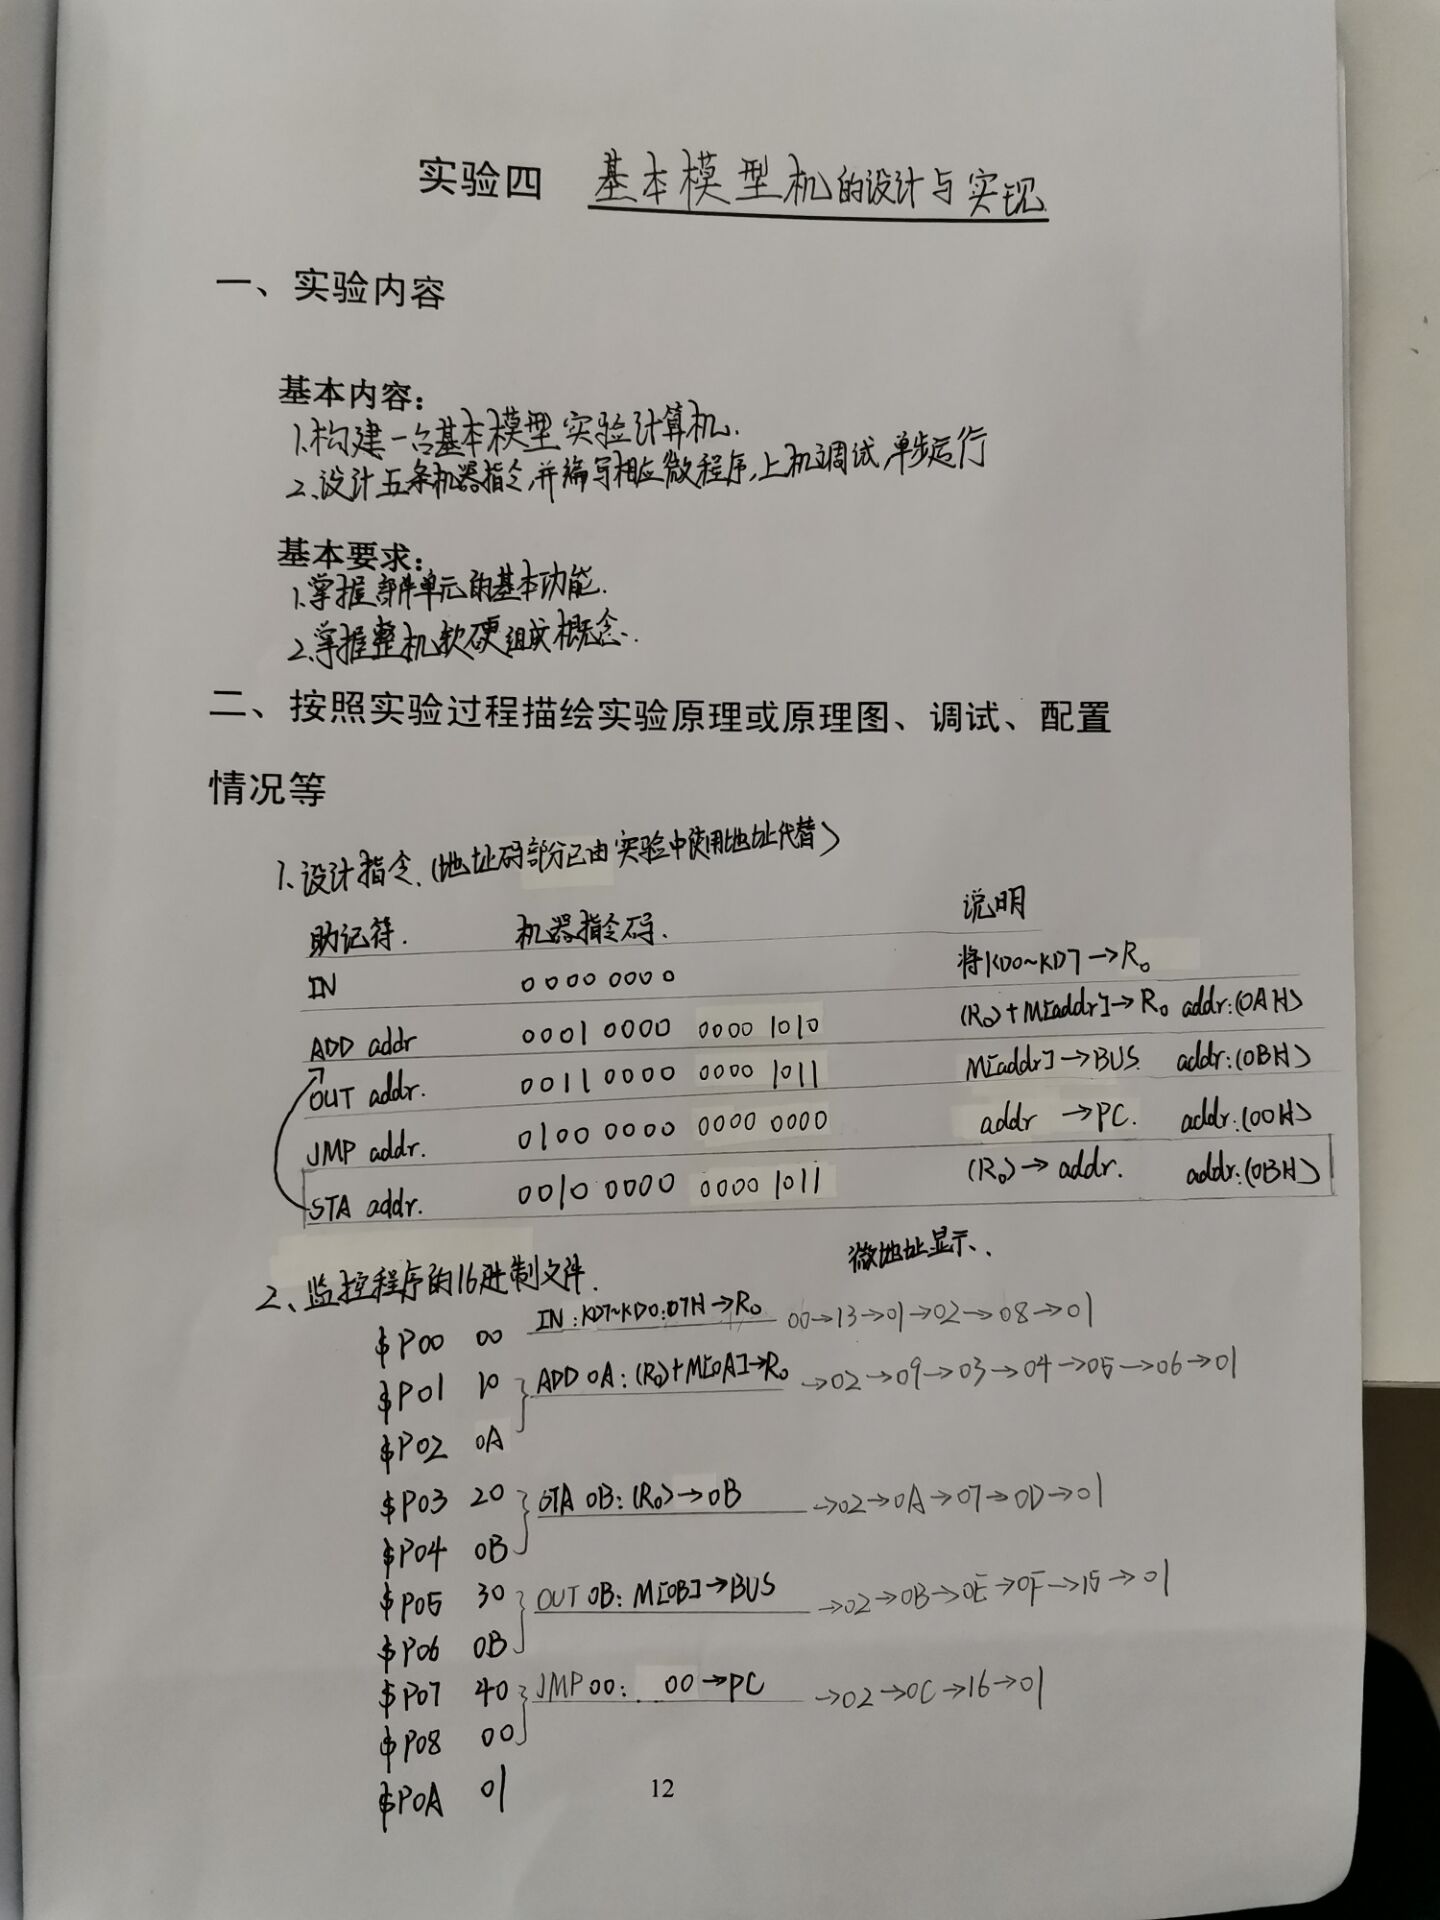 实验四 基本模型机的设计与实现
一、实验内容
基本内容：
1.构建一台基本模型实验计算机.
2.设计五条机器指令,并编写相应微程序,上机调试,单步运行
基本要求：
1.掌握部件单元的基本功能.
2.掌握整机软硬组成概念.
二、按照实验过程描绘实验原理或原理图、调试、配置
情况等
1.设计指令.(地址码部分已由实验中使用地址代替)
助记符. 机器指令码. 说明
IN 0000 0000 将KD0~KD7→R₀
ADD addr 0001 0000 0000 1010 (R₀)+M[addr]→R₀ addr:(0AH)
OUT addr. 0011 0000 0000 1011 M[addr]→BUS. addr:(0BH)
JMP addr. 0100 0000 0000 0000 addr →PC. addr:(00H)
STA addr. 0010 0000 0000 1011 (R₀)→addr. addr:(0BH)
2、监控程序的16进制文件. 微地址显示.
$P00 00 IN:KD7~KD0:07H→R₀ 00→13→01→02→08→01
$P01 10 ADD 0A:(R₀)+M[0A]→R₀ →02→09→03→04→05→06→01
$P02 0A
$P03 20 STA 0B:(R₀)→0B →02→0A→07→0D→01
$P04 0B
$P05 30 OUT 0B: M[0B]→BUS →02→0B→0E→0F→15→01
$P06 0B
$P07 40 JMP 00: 00→PC →02→0C→16→01
$P08 00
$P0A 01
12